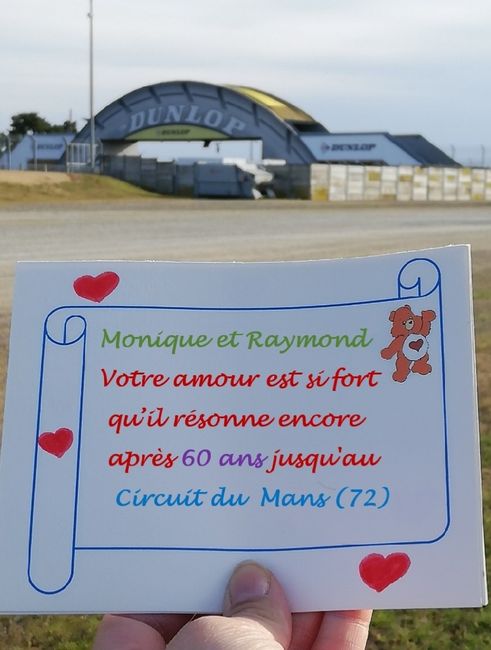 DUNLOP
DUNLOP
DUNLOP
Monique et Raymond
Votre amour est si fort
qu'il résonne encore
après 60 ans jusqu'au
Circuit du Mans (72)